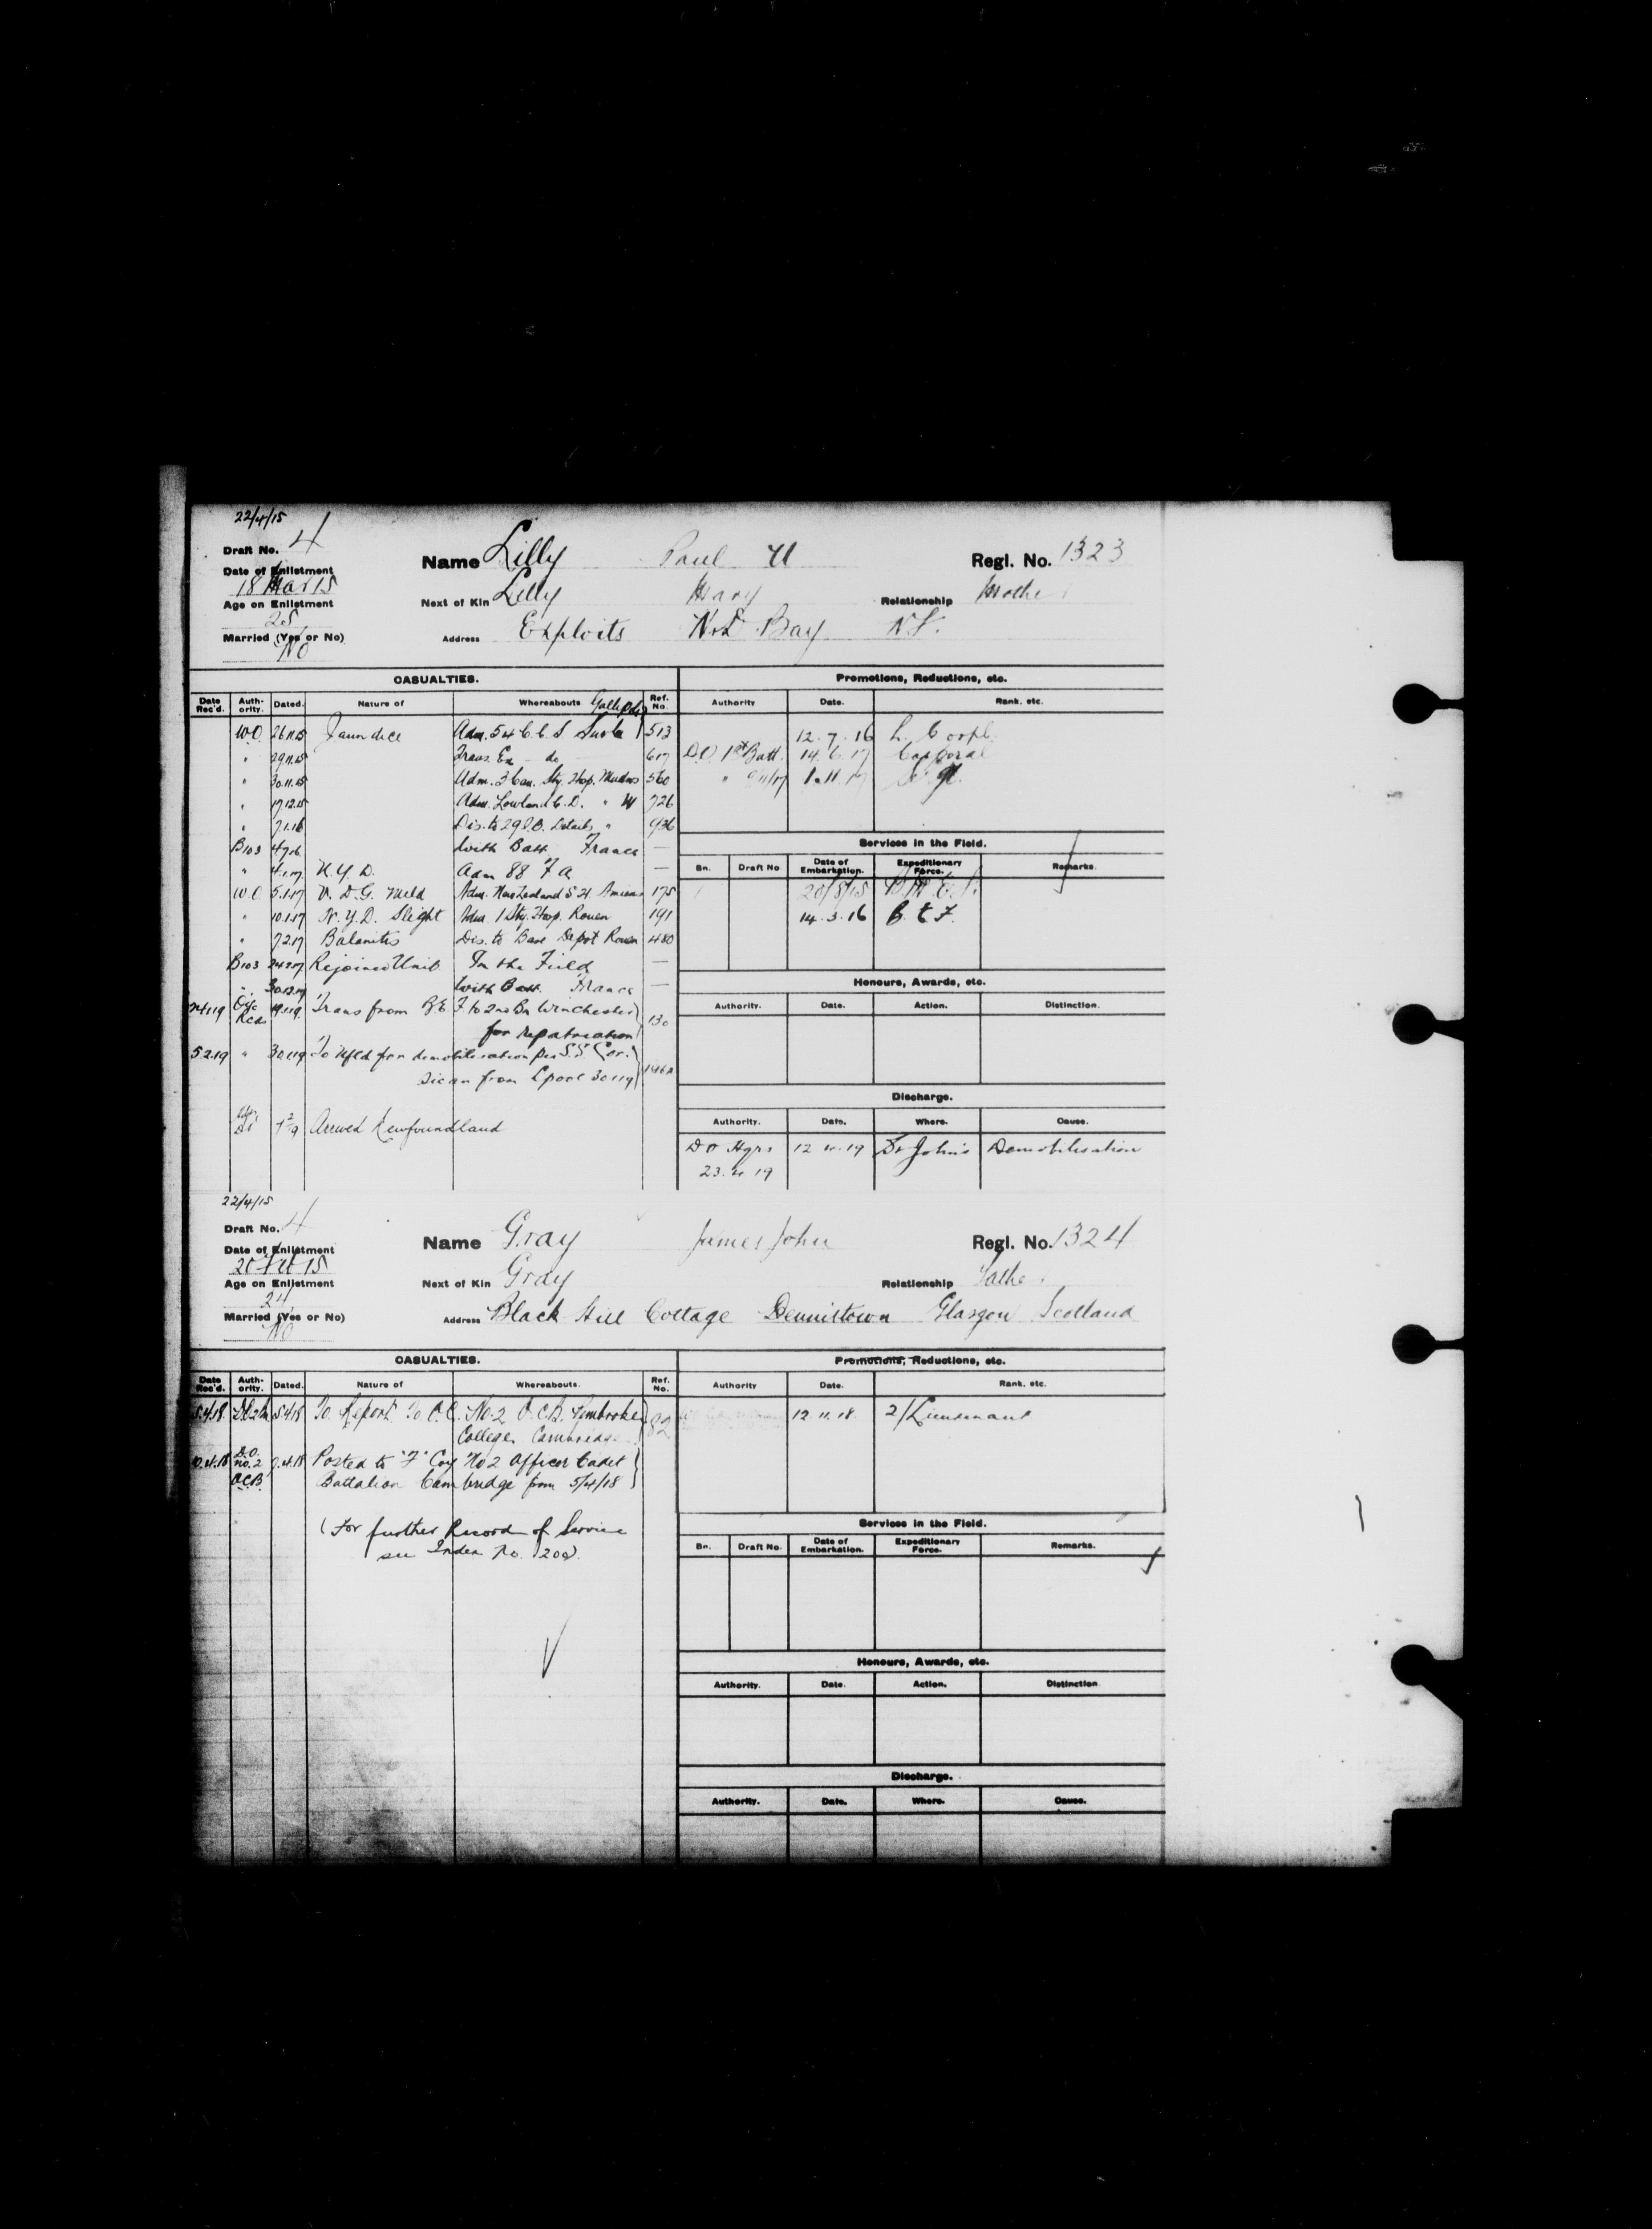 22/4/15
Draft No. 4
Date of Enlistment
18 Mar 15
Age on Enlistment
25
Married (Yes or No)
No
Name Lilly Paul
Regl. No. 1323
Next of Kin Lilly Mary
Relationship Mother
Address Exploits N.D. Bay N.F.
CASUALTIES.
Date Rec'd. Auth-ority. Dated. Nature of Whereabouts Ref. No.
Gallipoli
W.O. 26.11.15 Jaundice Adm. 54 C.C.S. Suvla 513
" 29.11.15 Trans. Ex do 617
" 30.11.15 Adm. 3 Can. Sty. Hosp. Mudros 560
" 17.12.15 Adm. Lowland C.D. " 726
" 7.1.16 Dis. to 29 D.B. Details " 936
B103 4.7.16 With Batt. France —
" 4.1.17 N.Y.D. Adm 88 F A —
W.O. 5.1.17 V.D.G. Mild Adm. New Zealand S H Amiens 175
" 10.1.17 N.Y.D. Slight Adm. 1 Sty. Hosp. Rouen 191
" 7.2.17 Balanitis Dis. to Base Depot Rouen 480
B103 24.2.17 Rejoined Unit In the Field —
" 30.12.17 With Batt. France —
24.1.19 19.1.19 Trans from B.E.F. to 2nd Bn Winchester
for repatriation 130
5.2.19 " 30.1.19 To Nfld for demobilisation per S.S. Cor-
sican from Lpool 30.1.19
Arrived Newfoundland
Promotions, Reductions, etc.
Authority Date. Rank. etc.
12.7.16 L. Corpl.
D.O. 1st Batt. 14.6.17 Corporal
" 9/11/17 1.11.17 Sergt.
Services in the Field.
Bn. Draft No Date of Embarkation. Expeditionary Force. Remarks.
1 20/8/15 B.M.E.F.
14.3.16 B.E.F.
Honours, Awards, etc.
Authority. Date. Action. Distinction.
Discharge.
Authority. Date. Where. Cause.
D O Hqrs 12 4.19 St John's Demobilisation
23.4.19
22/4/15
Draft No. 4
Date of Enlistment
20 Feb 15
Age on Enlistment
24
Married (Yes or No)
No
Name Gray James John
Regl. No. 1324
Next of Kin Gray
Relationship Father
Address Black Hill Cottage Dennistown Glasgow Scotland
CASUALTIES.
Date Rec'd. Auth-ority. Dated. Nature of Whereabouts. Ref. No.
5.4.18 5.4.18 To Report to O.C. No. 2 O.C.B. Pembroke
College, Cambridge 82
10.4.18 D.O. No. 2 O.C.B. 9.4.18 Posted to "F" Coy No 2 Officer Cadet
Battalion Cambridge from 5/4/18
(For further Record of Service
see Index No. 200).
Promotions, Reductions, etc.
Authority Date. Rank. etc.
12.11.18. 2/Lieutenant
Services in the Field.
Bn. Draft No. Date of Embarkation. Expeditionary Force. Remarks.
Honours, Awards, etc.
Authority. Date. Action. Distinction
Discharge.
Authority. Date. Where. Cause.